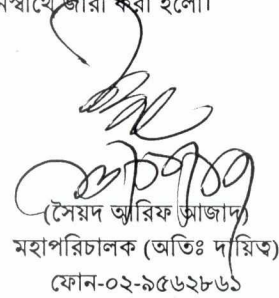 জারী করা হলো।
(সৈয়দ আরিফ আজাদ)
মহাপরিচালক (অতিঃ দায়িত্ব)
ফোন-০২-৯৫৬২৮৬১